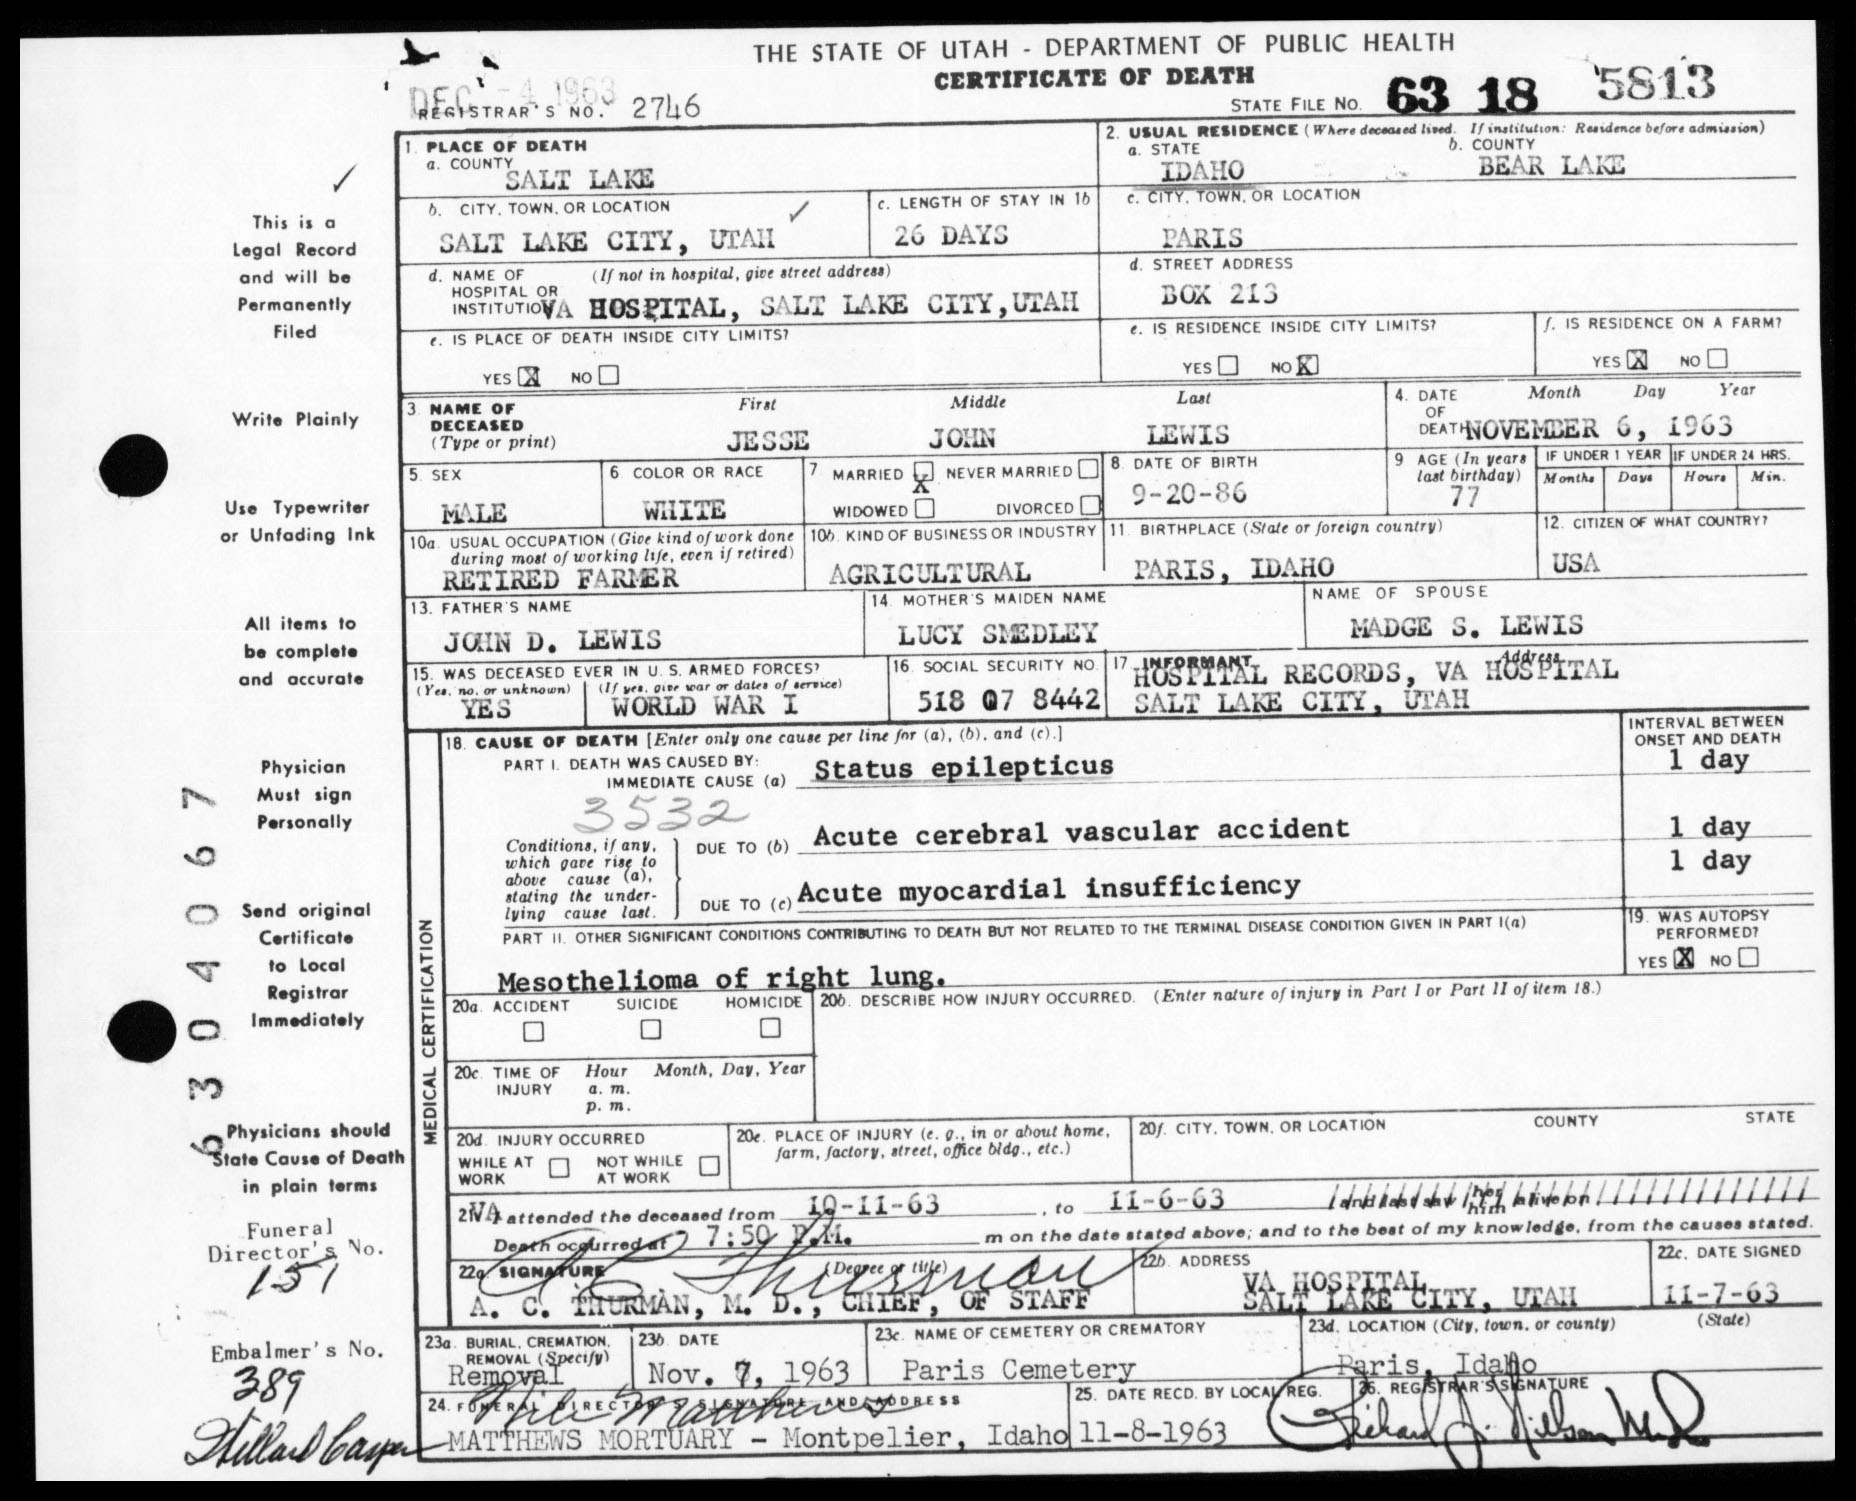 THE STATE OF UTAH - DEPARTMENT OF PUBLIC HEALTH
CERTIFICATE OF DEATH
DEC - 4 1963
REGISTRAR'S NO. 2746
STATE FILE NO. 63 18 5813
1. PLACE OF DEATH
a. COUNTY
SALT LAKE
2. USUAL RESIDENCE (Where deceased lived. If institution: Residence before admission)
a. STATE
IDAHO
b. COUNTY
BEAR LAKE
b. CITY, TOWN, OR LOCATION
SALT LAKE CITY, UTAH
c. LENGTH OF STAY IN 1b
26 DAYS
c. CITY, TOWN, OR LOCATION
PARIS
d. NAME OF HOSPITAL OR INSTITUTION (If not in hospital, give street address)
VA HOSPITAL, SALT LAKE CITY, UTAH
d. STREET ADDRESS
BOX 213
e. IS PLACE OF DEATH INSIDE CITY LIMITS?
YES X NO
e. IS RESIDENCE INSIDE CITY LIMITS?
YES NO X
f. IS RESIDENCE ON A FARM?
YES X NO
3. NAME OF DECEASED (Type or print)
First Middle Last
JESSE JOHN LEWIS
4. DATE OF DEATH Month Day Year
NOVEMBER 6, 1963
5. SEX
MALE
6 COLOR OR RACE
WHITE
7. MARRIED X NEVER MARRIED
WIDOWED DIVORCED
8. DATE OF BIRTH
9-20-86
9 AGE (In years last birthday)
77
IF UNDER 1 YEAR
Months Days
IF UNDER 24 HRS.
Hours Min.
10a. USUAL OCCUPATION (Give kind of work done during most of working life, even if retired)
RETIRED FARMER
10b. KIND OF BUSINESS OR INDUSTRY
AGRICULTURAL
11. BIRTHPLACE (State or foreign country)
PARIS, IDAHO
12. CITIZEN OF WHAT COUNTRY?
USA
13. FATHER'S NAME
JOHN D. LEWIS
14. MOTHER'S MAIDEN NAME
LUCY SMEDLEY
NAME OF SPOUSE
MADGE S. LEWIS
15. WAS DECEASED EVER IN U. S. ARMED FORCES?
(Yes, no, or unknown)
YES
(If yes, give war or dates of service)
WORLD WAR I
16. SOCIAL SECURITY NO.
518 07 8442
17. INFORMANT Address
HOSPITAL RECORDS, VA HOSPITAL
SALT LAKE CITY, UTAH
MEDICAL CERTIFICATION
18. CAUSE OF DEATH [Enter only one cause per line for (a), (b), and (c).]
INTERVAL BETWEEN ONSET AND DEATH
PART I. DEATH WAS CAUSED BY:
IMMEDIATE CAUSE (a) Status epilepticus 1 day
3532
Conditions, if any, which gave rise to above cause (a), stating the underlying cause last.
DUE TO (b) Acute cerebral vascular accident 1 day
1 day
DUE TO (c) Acute myocardial insufficiency
PART II. OTHER SIGNIFICANT CONDITIONS CONTRIBUTING TO DEATH BUT NOT RELATED TO THE TERMINAL DISEASE CONDITION GIVEN IN PART I(a)
Mesothelioma of right lung.
19. WAS AUTOPSY PERFORMED?
YES X NO
20a. ACCIDENT SUICIDE HOMICIDE
20b. DESCRIBE HOW INJURY OCCURRED. (Enter nature of injury in Part I or Part II of item 18.)
20c. TIME OF INJURY Hour Month, Day, Year
a. m.
p. m.
20d. INJURY OCCURRED
WHILE AT WORK NOT WHILE AT WORK
20e. PLACE OF INJURY (e. g., in or about home, farm, factory, street, office bldg., etc.)
20f. CITY, TOWN, OR LOCATION COUNTY STATE
21. VA attended the deceased from 10-11-63, to 11-6-63 and last saw her him alive on
Death occurred at 7:50 P.M. m on the date stated above; and to the best of my knowledge, from the causes stated.
22a. SIGNATURE (Degree or title)
A C Thurman
A. C. THURMAN, M. D., CHIEF, OF STAFF
22b. ADDRESS
VA HOSPITAL
SALT LAKE CITY, UTAH
22c. DATE SIGNED
11-7-63
23a. BURIAL, CREMATION, REMOVAL (Specify)
Removal
23b. DATE
Nov. 7, 1963
23c. NAME OF CEMETERY OR CREMATORY
Paris Cemetery
23d. LOCATION (City, town, or county) (State)
Paris, Idaho
24. FUNERAL DIRECTOR'S SIGNATURE AND ADDRESS
Matthews
MATTHEWS MORTUARY - Montpelier, Idaho
25. DATE RECD. BY LOCAL REG.
11-8-1963
26. REGISTRAR'S SIGNATURE
Richard J. Nilson MD
This is a
Legal Record
and will be
Permanently
Filed
Write Plainly
Use Typewriter
or Unfading Ink
All items to
be complete
and accurate
Physician
Must sign
Personally
Send original
Certificate
to Local
Registrar
Immediately
Physicians should
State Cause of Death
in plain terms
6304067
Funeral
Director's No.
151
Embalmer's No.
389